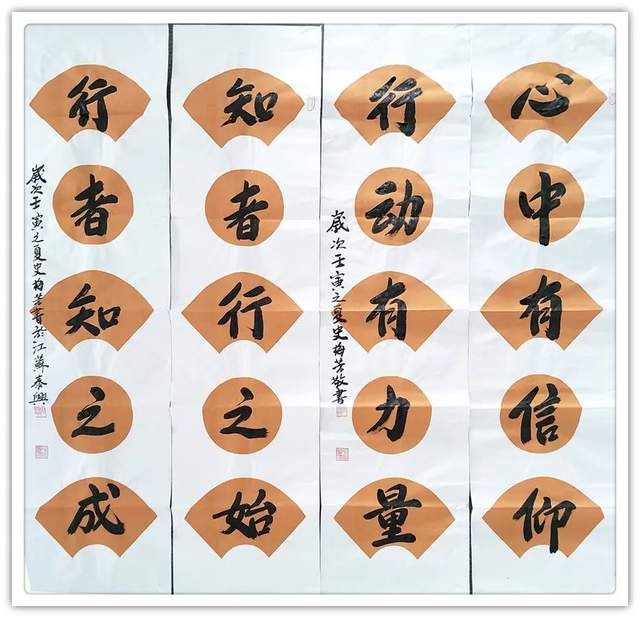 心中有信仰
行动有力量
歲次壬寅之夏史梅芳敬書
知者行之始
行者知之成
歲次壬寅之夏史梅芳書於江蘇泰興